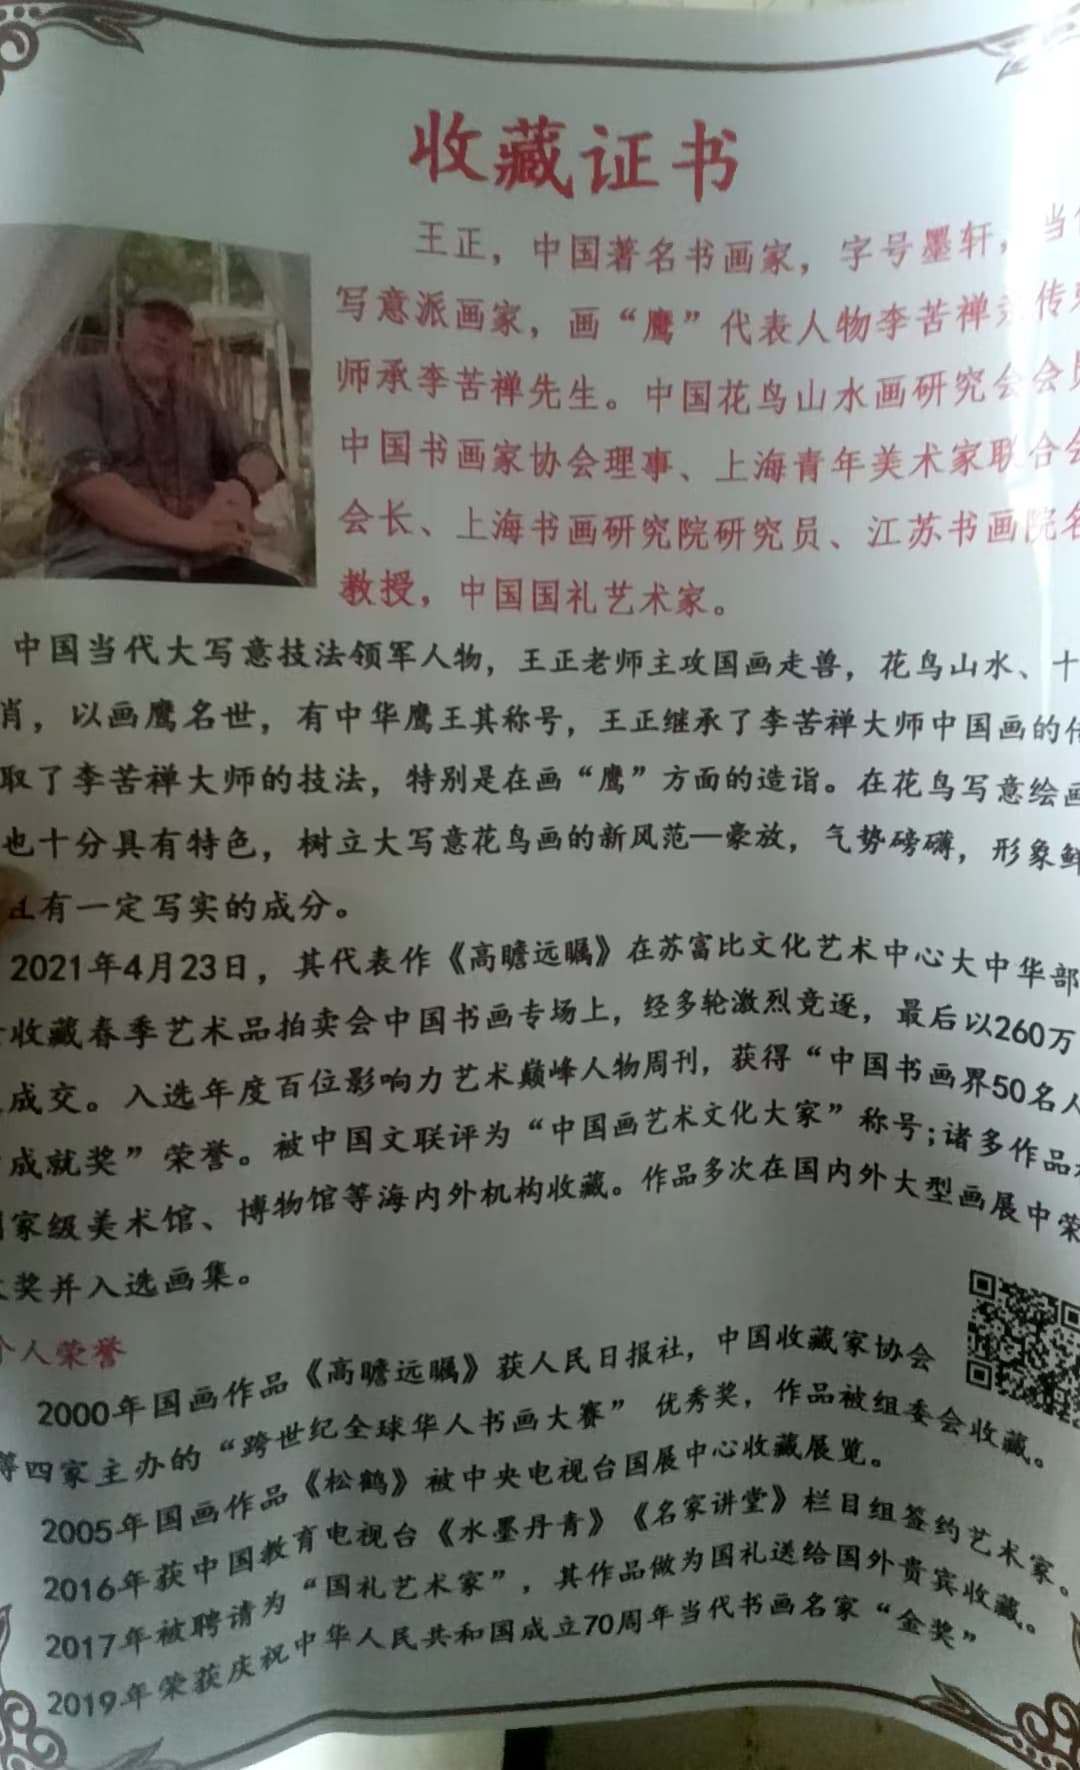 收藏证书
王正，中国著名书画家，字号墨轩，当
写意派画家，画“鹰”代表人物李苦禅 传
师承李苦禅先生。中国花鸟山水画研究会会员
中国书画家协会理事、上海青年美术家联合会
会长、上海书画研究院研究员、江苏书画院名
教授，中国国礼艺术家。
中国当代大写意技法领军人物，王正老师主攻国画走兽，花鸟山水、十
肖，以画鹰名世，有中华鹰王其称号，王正继承了李苦禅大师中国画的传
取了李苦禅大师的技法，特别是在画“鹰”方面的造诣。在花鸟写意绘画
也十分具有特色，树立大写意花鸟画的新风范—豪放，气势磅礴，形象鲜
有一定写实的成分。
2021年4月23日，其代表作《高瞻远瞩》在苏富比文化艺术中心大中华部
收藏春季艺术品拍卖会中国书画专场上，经多轮激烈竞逐，最后以260万
成交。入选年度百位影响力艺术巅峰人物周刊，获得“中国书画界50名人
成就奖”荣誉。被中国文联评为“中国画艺术文化大家”称号;诸多作品
家级美术馆、博物馆等海内外机构收藏。作品多次在国内外大型画展中荣
奖并入选画集。
个人荣誉
2000年国画作品《高瞻远瞩》获人民日报社，中国收藏家协会
等四家主办的“跨世纪全球华人书画大赛” 优秀奖，作品被组委会收藏。
2005年国画作品《松鹤》被中央电视台国展中心收藏展览。
2016年获中国教育电视台《水墨丹青》《名家讲堂》栏目组签约艺术家。
2017年被聘请为“国礼艺术家”，其作品做为国礼送给国外贵宾收藏。
2019年荣获庆祝中华人民共和国成立70周年当代书画名家“金奖”